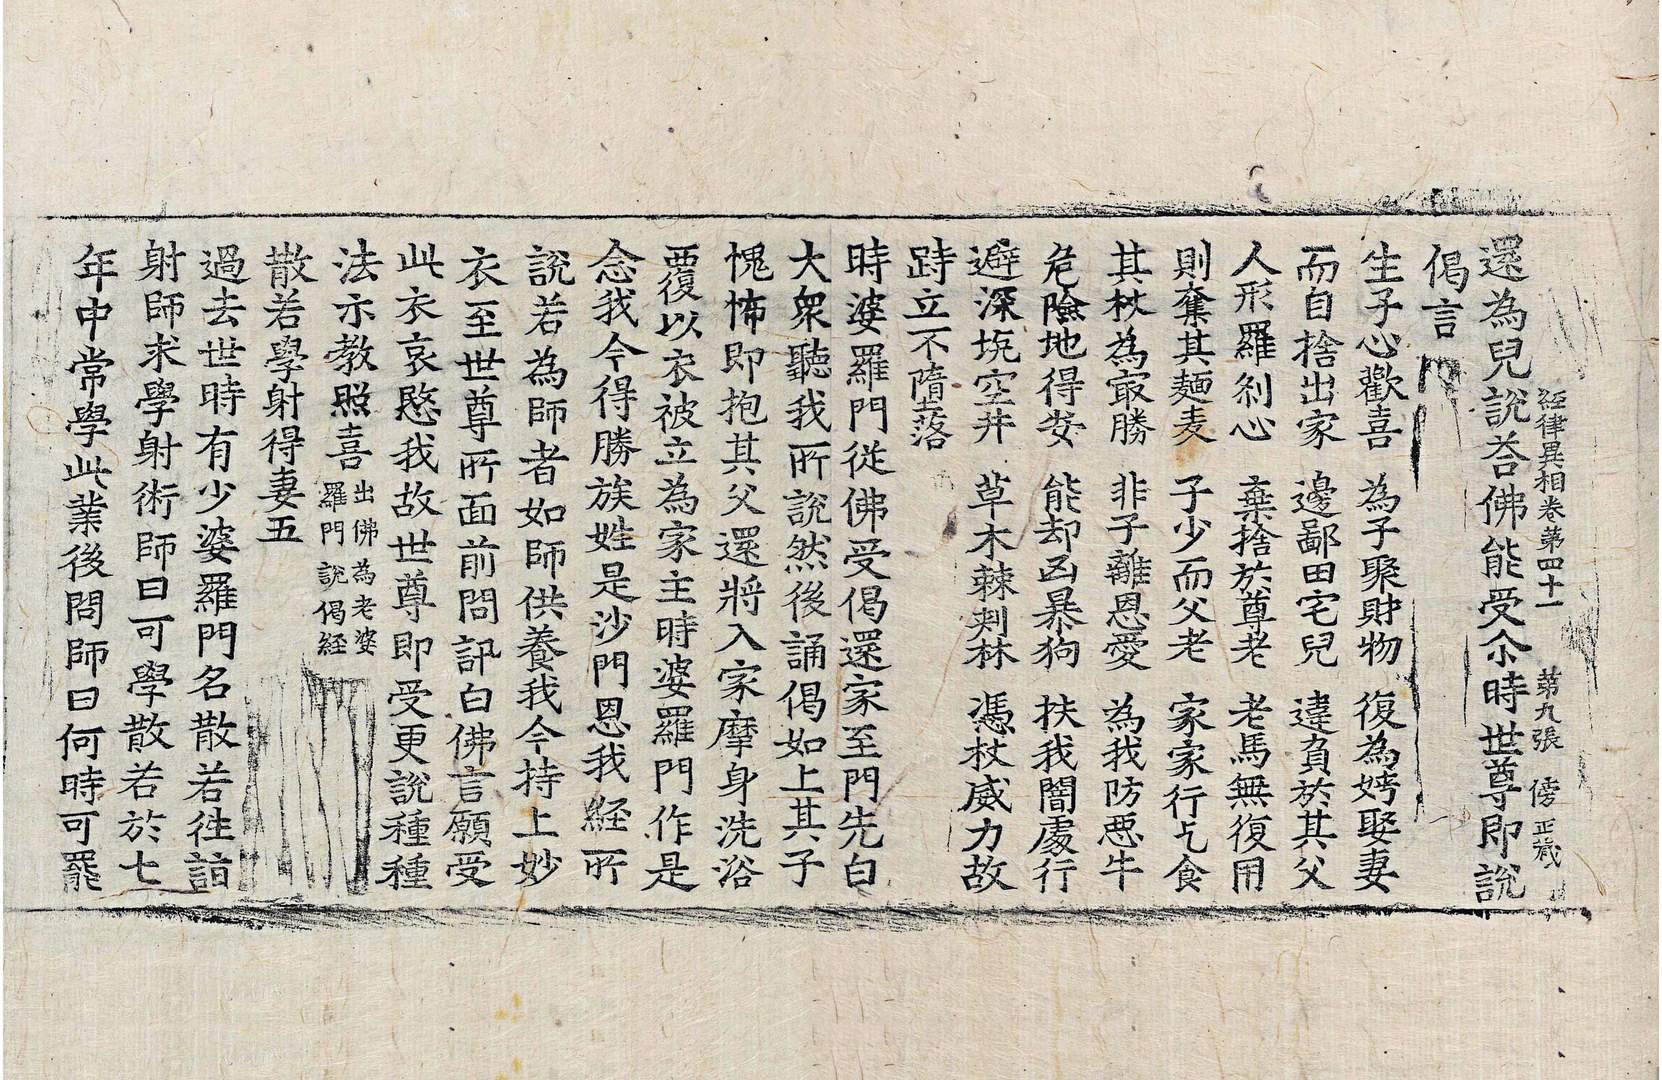 經律異相卷第四十一 第九張 傍 正岌
還為兒說荅佛能受尒時世尊即說
偈言
生子心歡喜 為子聚財物 復為娉娶妻
而自捨出家 邊鄙田宅兒 違負於其父
人形羅剎心 棄捨於尊老 老馬無復用
則奪其麵麦 子少而父老 家家行乞食
其杖為㝡勝 非子離恩愛 為我防惡牛
危險地得安 能却凶暴狗 扶我闇處行
避深坑空井 草木棘刺林 憑杖威力故
跱立不墮落
時婆羅門從佛受偈還家至門先白
大衆聽我所說然後誦偈如上其子
愧怖即抱其父還將入家摩身洗浴
覆以衣被立為家主時婆羅門作是
念我今得勝族姓是沙門恩我經所
說若為師者如師供養我今持上妙
衣至世尊所面前問訊白佛言願受
此衣哀愍我故世尊即受更說種種
法示教照喜 出佛為老婆羅門說偈經
散若學射得妻五
過去世時有少婆羅門名散若往詣
射師求學射術師曰可學散若於七
年中常學此業後問師曰何時可罷